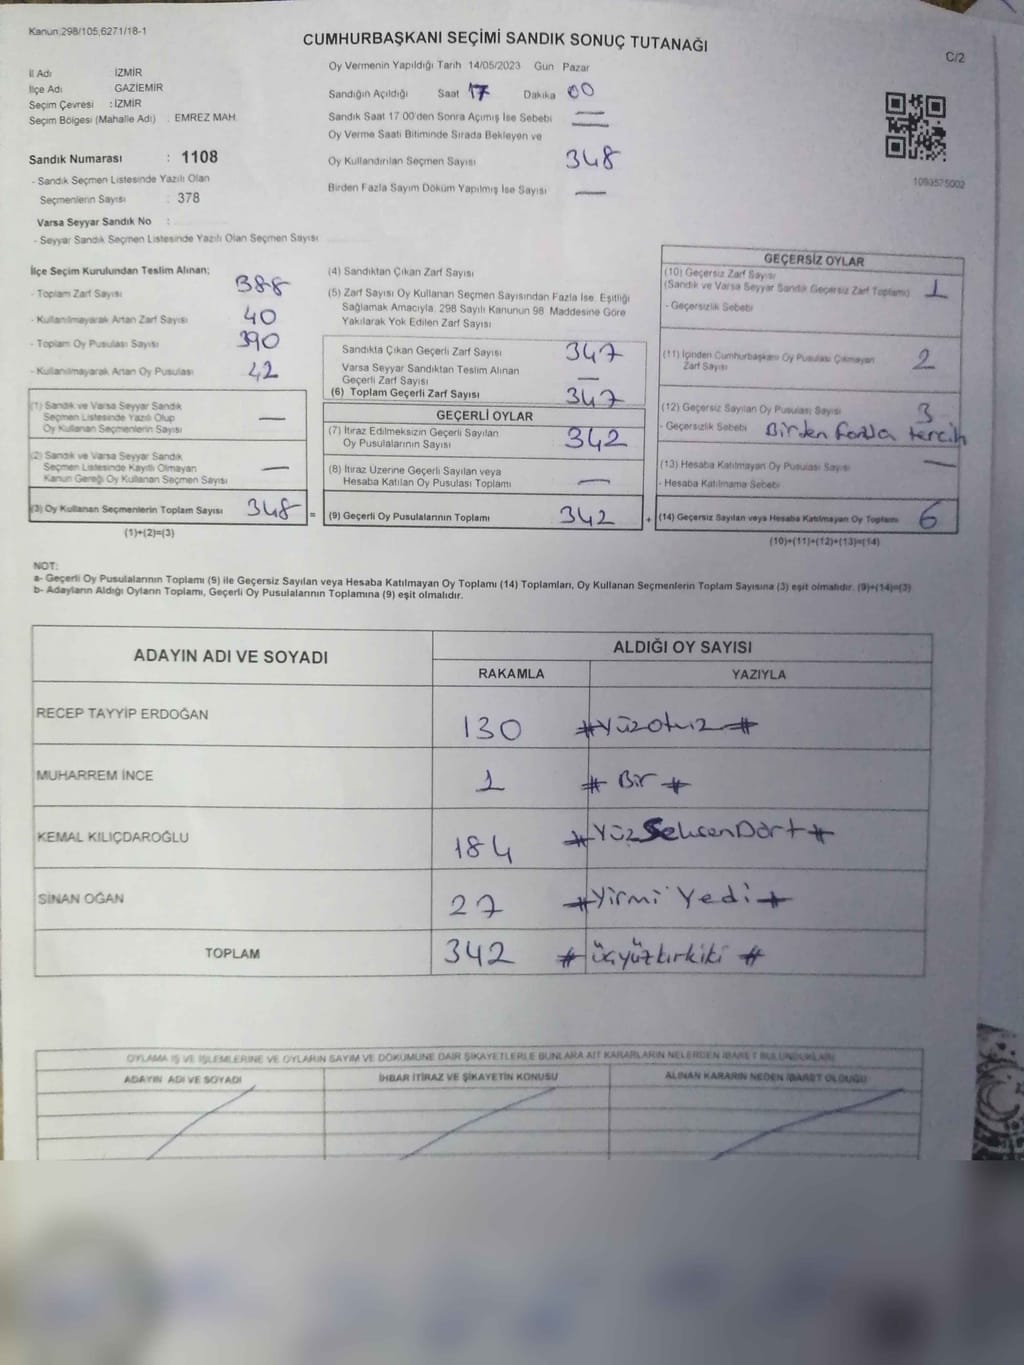 Kanun;298/105,6271/18-1
CUMHURBAŞKANI SEÇİMİ SANDIK SONUÇ TUTANAĞI
C/2
İl Adı İZMİR
İlçe Adı GAZİEMİR
Seçim Çevresi : İZMİR
Seçim Bölgesi (Mahalle Adı) : EMREZ MAH.
Sandık Numarası : 1108
- Sandık Seçmen Listesinde Yazılı Olan
Seçmenlerin Sayısı : 378
Varsa Seyyar Sandık No :
- Seyyar Sandık Seçmen Listesinde Yazılı Olan Seçmen Sayısı
Oy Vermenin Yapıldığı Tarih 14/05/2023 Gun Pazar
Sandığın Açıldığı Saat 17 Dakika 00
Sandık Saat 17.00'den Sonra Açımış İse Sebebi —
Oy Verme Saati Bitiminde Sırada Bekleyen ve —
Oy Kullandırılan Seçmen Sayısı 348
Birden Fazla Sayım Döküm Yapılmış İse Sayısı —
1093575002
İlçe Seçim Kurulundan Teslim Alınan;
- Toplam Zarf Sayısı 388
- Kullanılmayarak Artan Zarf Sayısı 40
- Toplam Oy Pusulası Sayısı 390
- Kullanılmayarak Artan Oy Pusulası 42
(1) Sandık ve Varsa Seyyar Sandık
Seçmen Listesinde Yazılı Olup
Oy Kullanan Seçmenlerin Sayısı —
(2) Sandık ve Varsa Seyyar Sandık
Seçmen Listesinde Kayıtlı Olmayan
Kanun Gereği Oy Kullanan Seçmen Sayısı —
(3) Oy Kullanan Seçmenlerin Toplam Sayısı 348 =
(1)+(2)=(3)
(4) Sandıktan Çıkan Zarf Sayısı
(5) Zarf Sayısı Oy Kullanan Seçmen Sayısından Fazla İse, Eşitliği
Sağlamak Amacıyla, 298 Sayılı Kanunun 98. Maddesine Göre
Yakılarak Yok Edilen Zarf Sayısı
Sandıkta Çıkan Geçerli Zarf Sayısı 347
Varsa Seyyar Sandıktan Teslim Alınan
Geçerli Zarf Sayısı —
(6) Toplam Geçerli Zarf Sayısı 347
GEÇERLİ OYLAR
(7) İtiraz Edilmeksizin Geçerli Sayılan
Oy Pusulalarının Sayısı 342
(8) İtiraz Üzerine Geçerli Sayılan veya
Hesaba Katılan Oy Pusulası Toplamı —
(9) Geçerli Oy Pusulalarının Toplamı 342 +
GEÇERSİZ OYLAR
(10) Geçersiz Zarf Sayısı
(Sandık ve Varsa Seyyar Sandık Geçersiz Zarf Toplamı) 1
- Geçersizlik Sebebi
(11) İçinden Cumhurbaşkanı Oy Pusulası Çıkmayan
Zarf Sayısı 2
(12) Geçersiz Sayılan Oy Pusulası Sayısı 3
- Geçersizlik Sebebi Birden fazla tercih
(13) Hesaba Katılmayan Oy Pusulası Sayısı —
- Hesaba Katılmama Sebebi
(14) Geçersiz Sayılan veya Hesaba Katılmayan Oy Toplamı 6
(10)+(11)+(12)+(13)=(14)
NOT:
a- Geçerli Oy Pusulalarının Toplamı (9) ile Geçersiz Sayılan veya Hesaba Katılmayan Oy Toplamı (14) Toplamları, Oy Kullanan Seçmenlerin Toplam Sayısına (3) eşit olmalıdır. (9)+(14)=(3)
b- Adayların Aldığı Oyların Toplamı, Geçerli Oy Pusulalarının Toplamına (9) eşit olmalıdır.
ADAYIN ADI VE SOYADI ALDIĞI OY SAYISI
RAKAMLA YAZIYLA
RECEP TAYYİP ERDOĞAN 130 #Yüzotuz#
MUHARREM İNCE 1 # Bir #
KEMAL KILIÇDAROĞLU 184 #YüzSeksenDört#
SİNAN OĞAN 27 #Yirmi Yedi#
TOPLAM 342 # üçyüzkırkiki #
OYLAMA İŞ VE İŞLEMLERİNE VE OYLARIN SAYIM VE DÖKÜMÜNE DAİR ŞİKAYETLERLE BUNLARA AİT KARARLARIN NELERDEN İBARET BULUNDUKLARI
ADAYIN ADI VE SOYADI İHBAR İTİRAZ VE ŞİKAYETİN KONUSU ALINAN KARARIN NEDEN İBARET OLDUĞU